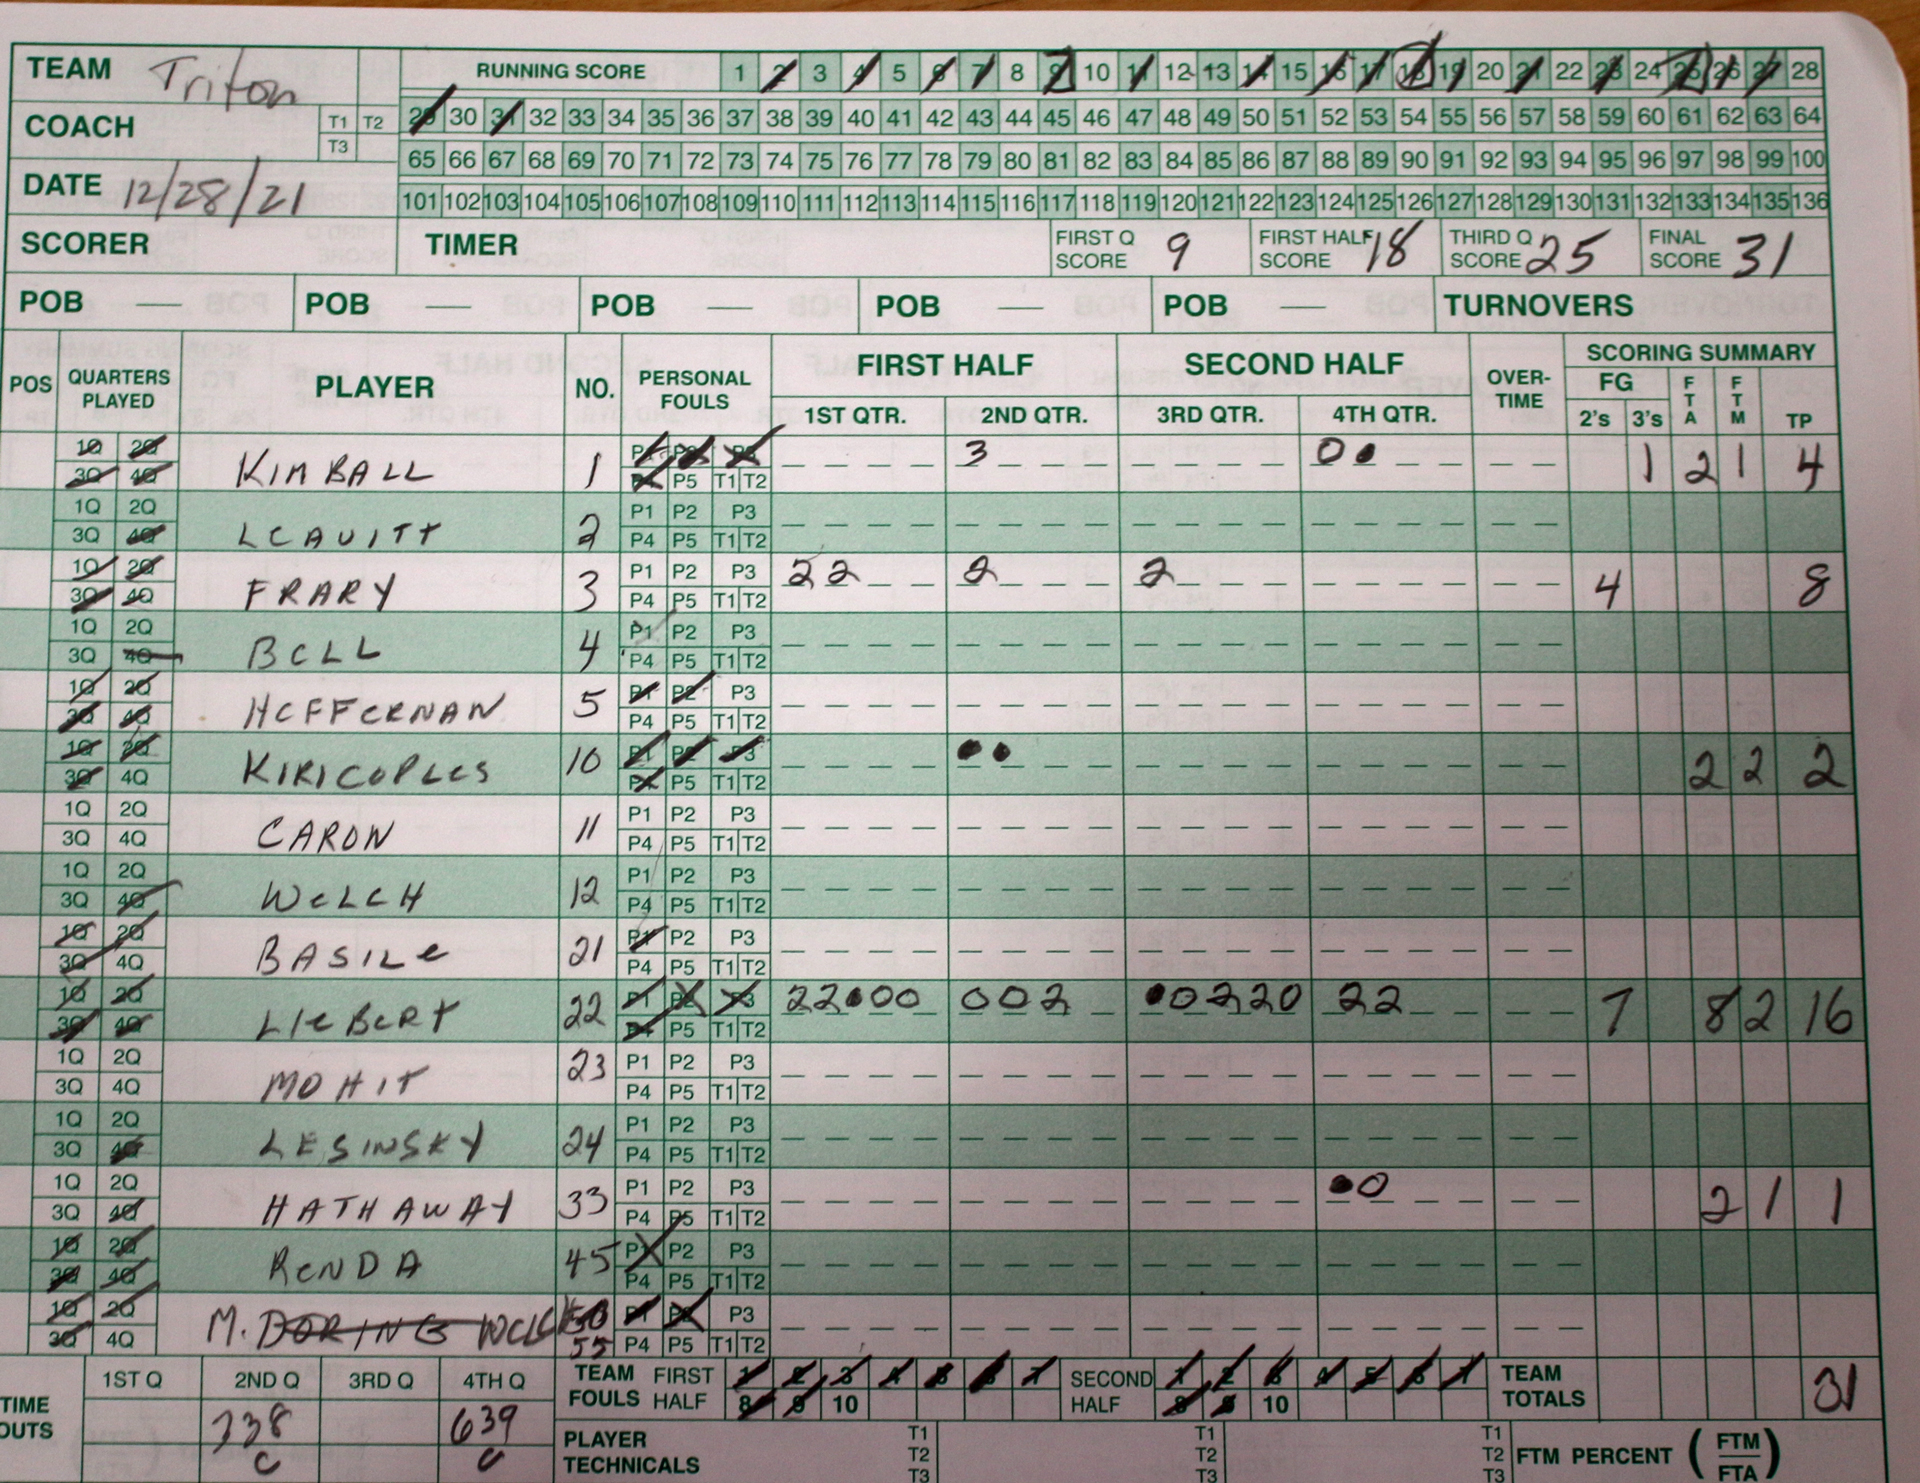 TEAM Triton RUNNING SCORE 1 2 3 4 5 6 7 8 9 10 11 12 13 14 15 16 17 18 19 20 21 22 23 24 25 26 27 28
29 30 31 32 33 34 35 36 37 38 39 40 41 42 43 44 45 46 47 48 49 50 51 52 53 54 55 56 57 58 59 60 61 62 63 64
COACH T1 T2 T3
65 66 67 68 69 70 71 72 73 74 75 76 77 78 79 80 81 82 83 84 85 86 87 88 89 90 91 92 93 94 95 96 97 98 99 100
DATE 12/28/21
101 102 103 104 105 106 107 108 109 110 111 112 113 114 115 116 117 118 119 120 121 122 123 124 125 126 127 128 129 130 131 132 133 134 135 136
SCORER TIMER FIRST Q SCORE 9 FIRST HALF SCORE 18 THIRD Q SCORE 25 FINAL SCORE 31
POB — POB — POB — POB — POB — TURNOVERS
POS QUARTERS PLAYED PLAYER NO. PERSONAL FOULS FIRST HALF SECOND HALF OVER-TIME SCORING SUMMARY
1ST QTR. 2ND QTR. 3RD QTR. 4TH QTR. FG 2's 3's FTA FTM TP
1Q 2Q P1 P2 P3 3 0
3Q 4Q KIMBALL 1 P4 P5 T1 T2 1 2 1 4
1Q 2Q P1 P2 P3
3Q 4Q LEAVITT 2 P4 P5 T1 T2
1Q 2Q P1 P2 P3 2 2 2 2
3Q 4Q FRARY 3 P4 P5 T1 T2 4 8
1Q 2Q P1 P2 P3
3Q 4Q BELL 4 P4 P5 T1 T2
1Q 2Q P1 P2 P3
3Q 4Q HEFFERNAN 5 P4 P5 T1 T2
1Q 2Q P1 P2 P3
3Q 4Q KIRICOPLES 10 P4 P5 T1 T2 2 2 2
1Q 2Q P1 P2 P3
3Q 4Q CARON 11 P4 P5 T1 T2
1Q 2Q P1 P2 P3
3Q 4Q WELCH 12 P4 P5 T1 T2
1Q 2Q P1 P2 P3
3Q 4Q BASILE 21 P4 P5 T1 T2
1Q 2Q P1 P2 P3 2 2 0 0 0 0 2 0 2 2 0 2 2
3Q 4Q LIEBERT 22 P4 P5 T1 T2 7 8 2 16
1Q 2Q P1 P2 P3
3Q 4Q MOHIT 23 P4 P5 T1 T2
1Q 2Q P1 P2 P3
3Q 4Q LESINSKY 24 P4 P5 T1 T2
1Q 2Q P1 P2 P3 0
3Q 4Q HATHAWAY 33 P4 P5 T1 T2 2 1 1
1Q 2Q P1 P2 P3
3Q 4Q RENDA 45 P4 P5 T1 T2
1Q 2Q P1 P2 P3
3Q 4Q M. DORING WELCH 50 55 P4 P5 T1 T2
TIME OUTS 1ST Q 2ND Q 3RD Q 4TH Q TEAM FOULS FIRST HALF 1 2 3 4 5 6 7 SECOND HALF 1 2 3 4 5 6 7 TEAM TOTALS 31
8 9 10 8 9 10
338 C 639 C
PLAYER TECHNICALS T1 T2 T3 T1 T2 T3 T1 T2 T3 FTM PERCENT (FTM/FTA)